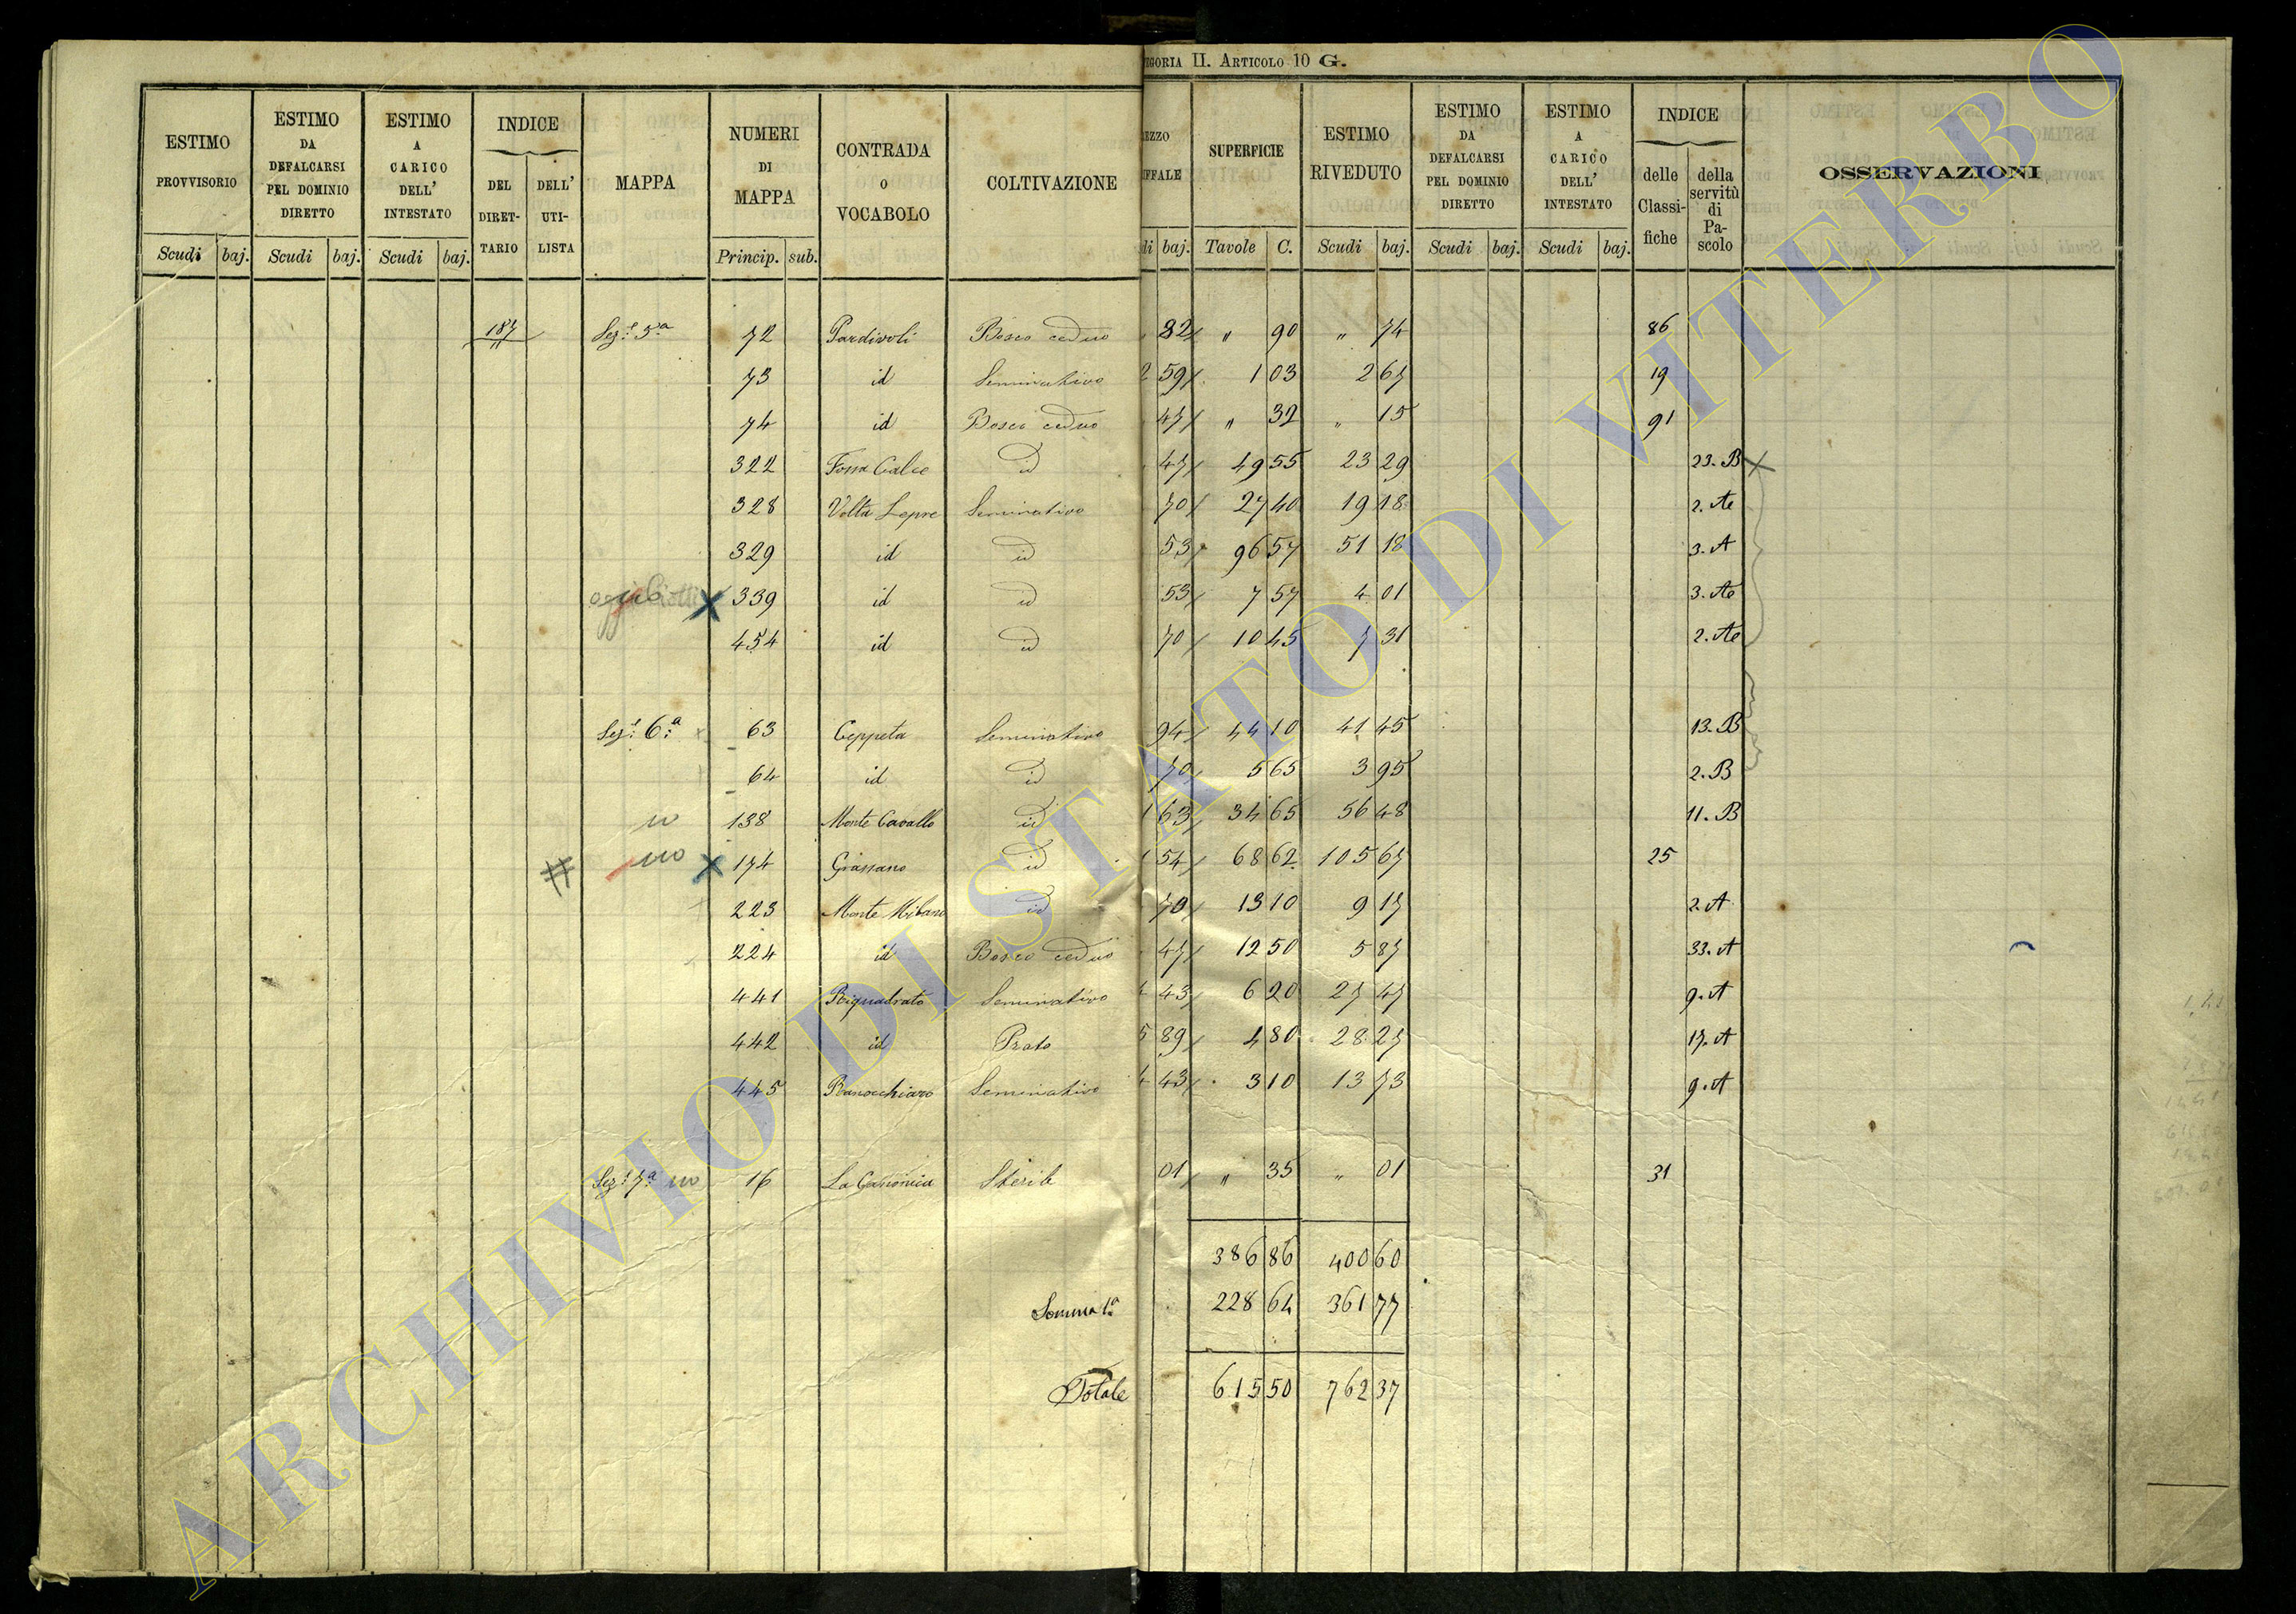 EGORIA II. ARTICOLO 10 G.
ESTIMO PROVVISORIO | ESTIMO DA DEFALCARSI PEL DOMINIO DIRETTO | ESTIMO A CARICO DELL' INTESTATO | INDICE DEL DIRETTARIO | DELL' UTILISTA | MAPPA | NUMERI DI MAPPA | CONTRADA O VOCABOLO | COLTIVAZIONE | EZZO IFFALE | SUPERFICIE | ESTIMO RIVEDUTO | ESTIMO DA DEFALCARSI PEL DOMINIO DIRETTO | ESTIMO A CARICO DELL' INTESTATO | INDICE delle Classifiche | della servitù di Pascolo | OSSERVAZIONI
Scudi | baj. | Scudi | baj. | Scudi | baj. | Princip. | sub. | di | baj. | Tavole | C. | Scudi | baj. | Scudi | baj. | Scudi | baj.
187 | Sez.e 5a | 72 | Pardivoli | Bosco ceduo | 82 | " | 90 | " | 74 | 86
73 | id | Seminativo | 2 | 59 | 1 | 03 | 2 | 67 | 19
74 | id | Bosco ceduo | 47 | " | 32 | " | 15 | 91
322 | Fossa Calce | id | 47 | 49 | 55 | 23 | 29 | 23. B
328 | Volta Lepre | Seminativo | 70 | 27 | 40 | 19 | 18 | 2. A
329 | id | id | 53 | 96 | 57 | 51 | 18 | 3. A
339 | id | id | 53 | 7 | 57 | 4 | 01 | 3. A
454 | id | id | 70 | 10 | 45 | 7 | 31 | 2. A
Sez.e 6.a | 63 | Ceppeta | Seminativo | 94 | 44 | 10 | 41 | 45 | 13. B
64 | id | id | 70 | 5 | 65 | 3 | 95 | 2. B
no | 138 | Monte Cavallo | id | 1 | 63 | 34 | 65 | 56 | 48 | 11. B
# | no | X | 174 | Grassano | id | 1 | 54 | 68 | 62 | 105 | 67 | 25
223 | Monte Milano | id | 70 | 13 | 10 | 9 | 17 | 2. A
224 | id | Bosco ceduo | 47 | 12 | 50 | 5 | 87 | 33. A
441 | Riquadrato | Seminativo | 4 | 43 | 6 | 20 | 27 | 47 | 9. A
442 | id | Prato | 5 | 89 | 4 | 80 | 28 | 27 | 17. A
445 | Ranocchiaro | Seminativo | 4 | 43 | 3 | 10 | 13 | 73 | 9. A
Sez.e 7a no | 16 | La Canonica | Sterile | 01 | " | 35 | " | 01 | 31
386 | 86 | 400 | 60
Somma 1a | 228 | 64 | 361 | 77
Totale | 615 | 50 | 762 | 37
ARCHIVIO DI STATO DI VITERBO